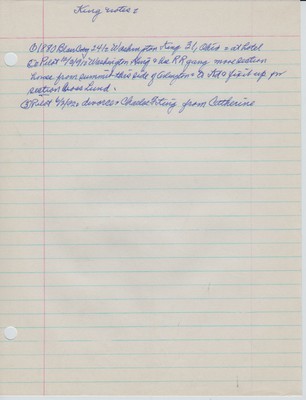 King notes :
① 1880 Blue Cay 241/2 Washington King 31, Ohio + at hotel
② Pilot 10/3/1912 Washington King & his RR gang move section
house from summit this side of Clayton + to fix it up for
section boss Lund.
③ Pilot divorce + Charles F King from Catherine